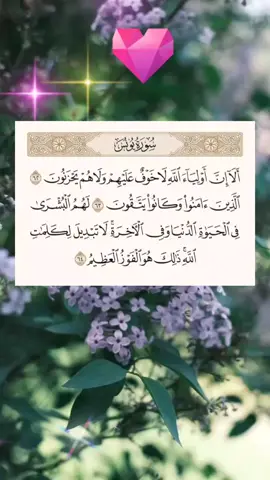 سُورَةُ يُونُسَ
أَلَآ إِنَّ أَوْلِيَآءَ ٱللَّهِ لَا خَوْفٌ عَلَيْهِمْ وَلَا هُمْ يَحْزَنُونَ ٦٢
ٱلَّذِينَ ءَامَنُوا۟ وَكَانُوا۟ يَتَّقُونَ ٦٣ لَهُمُ ٱلْبُشْرَىٰ
فِى ٱلْحَيَوٰةِ ٱلدُّنْيَا وَفِى ٱلْءَاخِرَةِ لَا تَبْدِيلَ لِكَلِمَٰتِ
ٱللَّهِ ذَٰلِكَ هُوَ ٱلْفَوْزُ ٱلْعَظِيمُ ٦٤